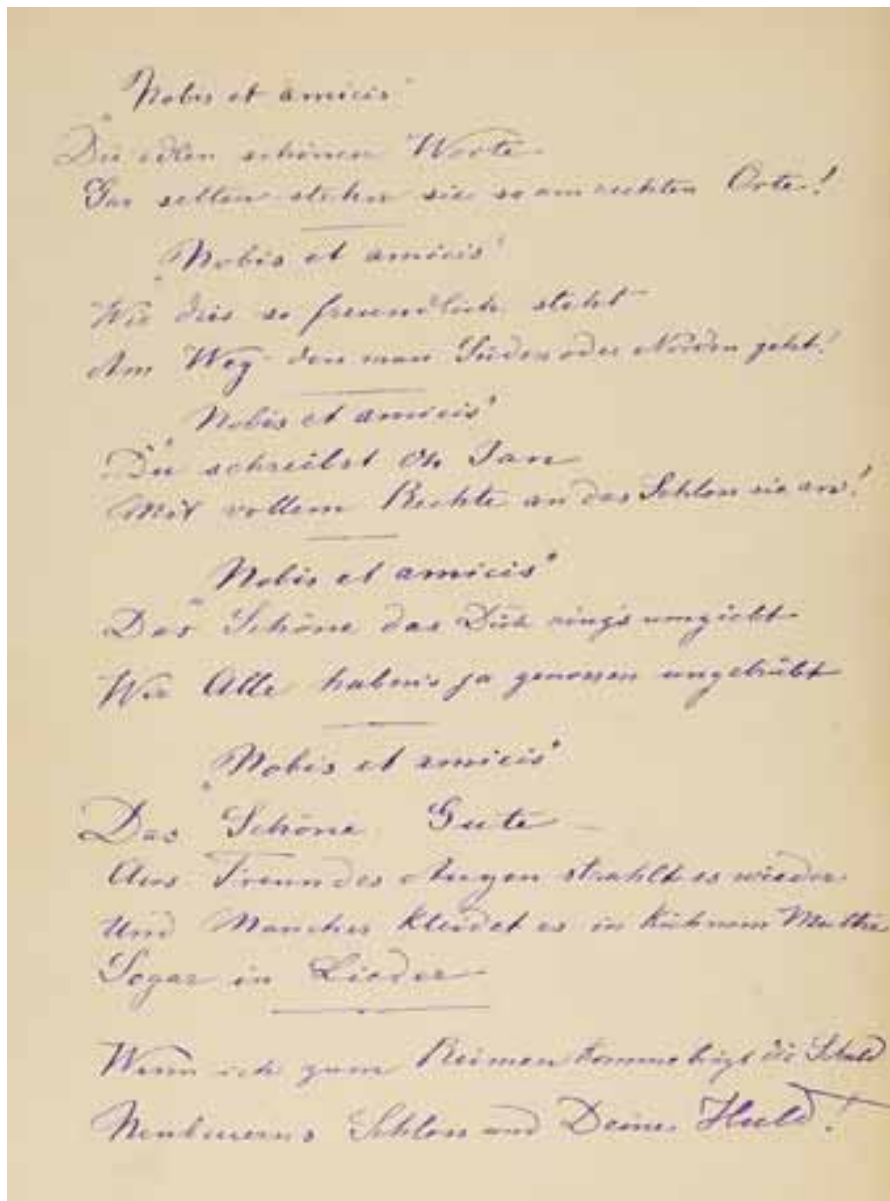 "Nobis et amicis"
Die edlen schönen Worte
Gar selten stehn sie so am rechten Orte!
"Nobis et amicis"
Wie dies so freundlich steht
Am Weg den man Süden oder Norden geht!
"Nobis et amicis"
Du schreibst Oh Jan
Mit vollem Rechte an das Schloss sie an!
"Nobis et amicis"
Das Schöne das Dich rings umgiebt
Wir Alle haben's ja genossen ungetrübt
"Nobis et amicis"
Das Schöne Gute
Aus Freundes Augen strahlt es wieder
Und Mancher kleidet es in kühnem Muthe
Sogar in Lieder
Wenn ich zum Reimen komme trägt die Schuld
Neubeuerns Schloss und Deine Huld!